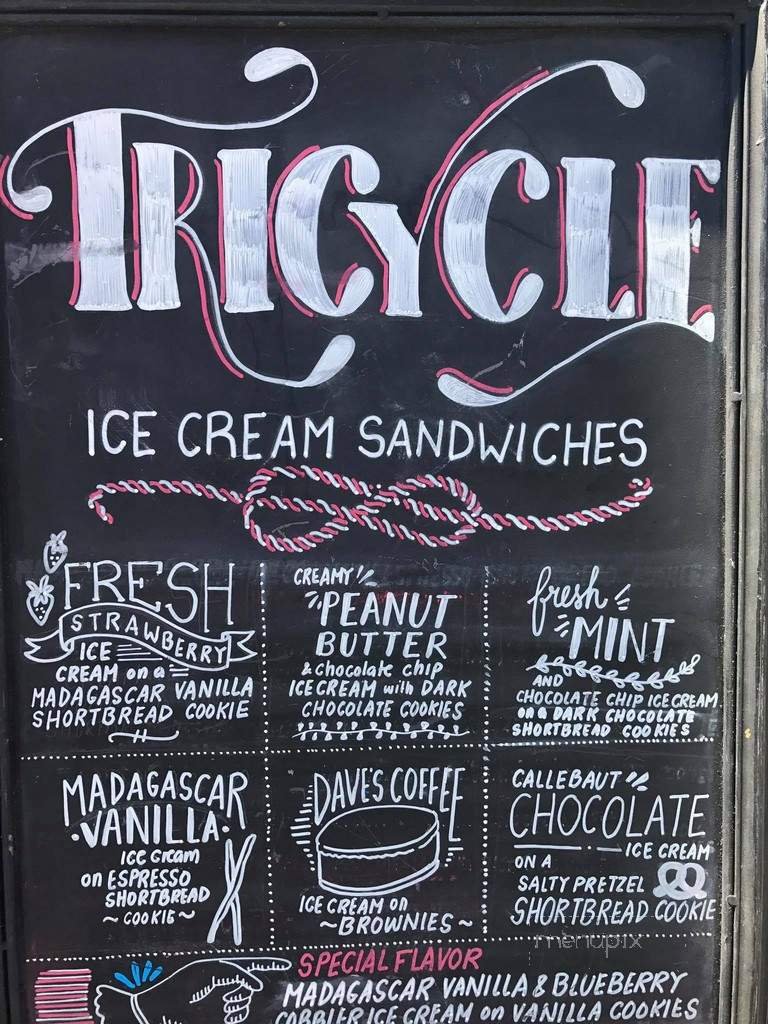 TRICYCLE
ICE CREAM SANDWICHES
FRESH
STRAWBERRY
ICE
CREAM on a
MADAGASCAR VANILLA
SHORTBREAD COOKIE
CREAMY
PEANUT
BUTTER
& chocolate chip
ICE CREAM with DARK
CHOCOLATE COOKIES
fresh
MINT
AND
CHOCOLATE CHIP ICE CREAM
on a DARK CHOCOLATE
SHORTBREAD COOKIES
MADAGASCAR
VANILLA
ice cream
on ESPRESSO
SHORTBREAD
~COOKIE~
DAVE'S COFFEE
ICE CREAM on
~BROWNIES~
CALLEBAUT
CHOCOLATE
ICE CREAM
ON A
SALTY PRETZEL
SHORTBREAD COOKIE
menupix
SPECIAL FLAVOR
MADAGASCAR VANILLA & BLUEBERRY
COBBLER ICE CREAM on VANILLA COOKIES